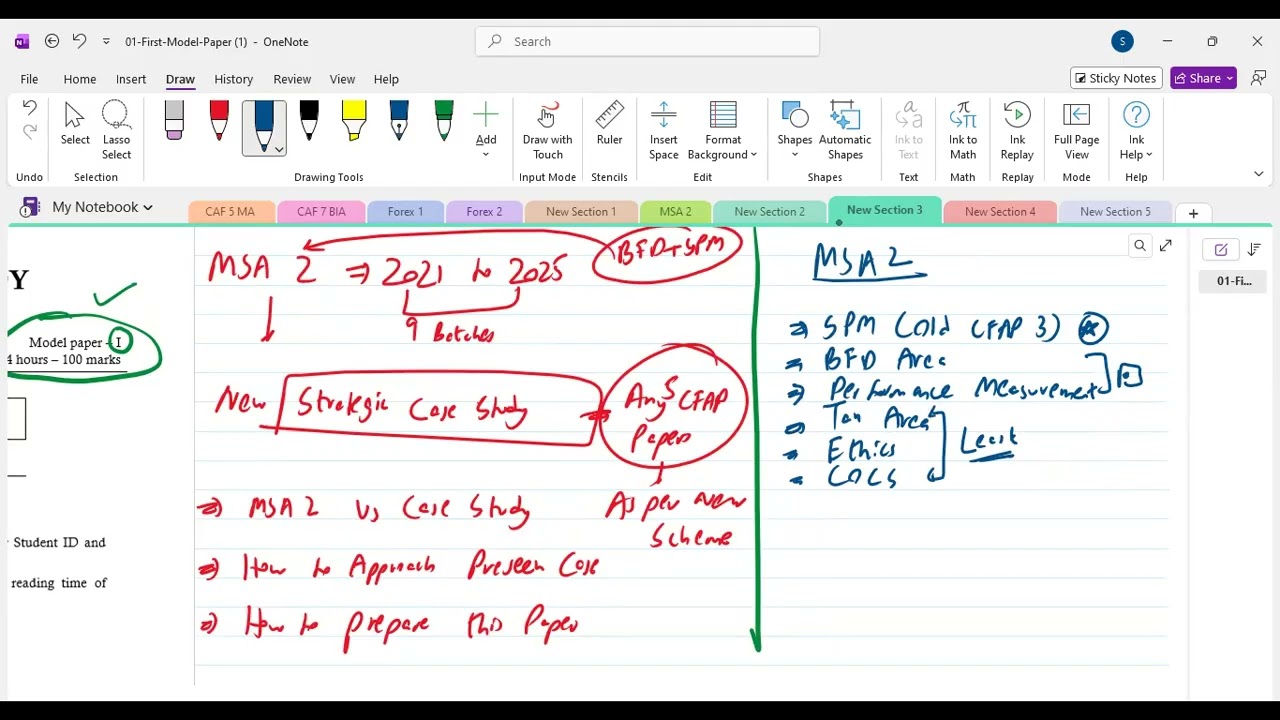 01-First-Model-Paper (1) - OneNote
Search
S
File Home Insert Draw History Review View Help
Sticky Notes Share
Select Lasso Select Add Draw with Touch Ruler Insert Space Format Background Shapes Automatic Shapes Ink to Text Ink to Math Ink Replay Full Page View Ink Help
Undo Selection Drawing Tools Input Mode Stencils Edit Shapes Text Math Replay Mode Help
My Notebook
CAF 5 MA CAF 7 BIA Forex 1 Forex 2 New Section 1 MSA 2 New Section 2 New Section 3 New Section 4 New Section 5 +
01-Fi...
Y
Model paper – I
4 hours – 100 marks
Student ID and
reading time of
MSA 2 ⇒ 2021 to 2025 BFD+SPM
9 Batches
New Strategic Case Study Any 5 CFAP Papers
As per New Scheme
⇒ MSA 2 Vs Case Study
⇒ How to Approach Preseen Case
⇒ How to prepare this Paper
MSA 2
⇒ SPM (Old CFAP 3)
BFD Area
⇒ Performance Measurement
Tax Area
Ethics
COCS
Least